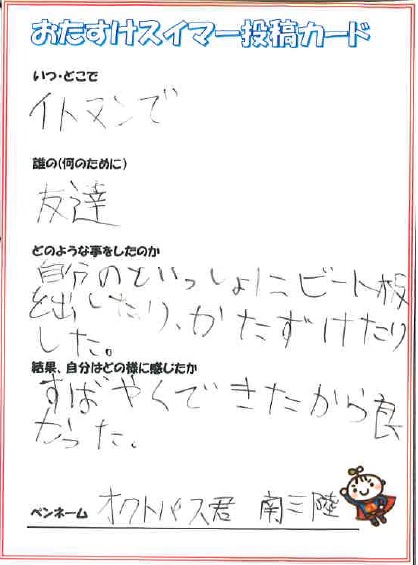 おたすけスイマー投稿カード
いつ・どこで
イトマンで
誰の(何のために)
友達
どのような事をしたのか
自分のといっしょにビート板
を出したり、かたずけたり
した。
結果、自分はどの様に感じたか
すばやくできたから良
かった。
ペンネーム オクトパス君 南三陸